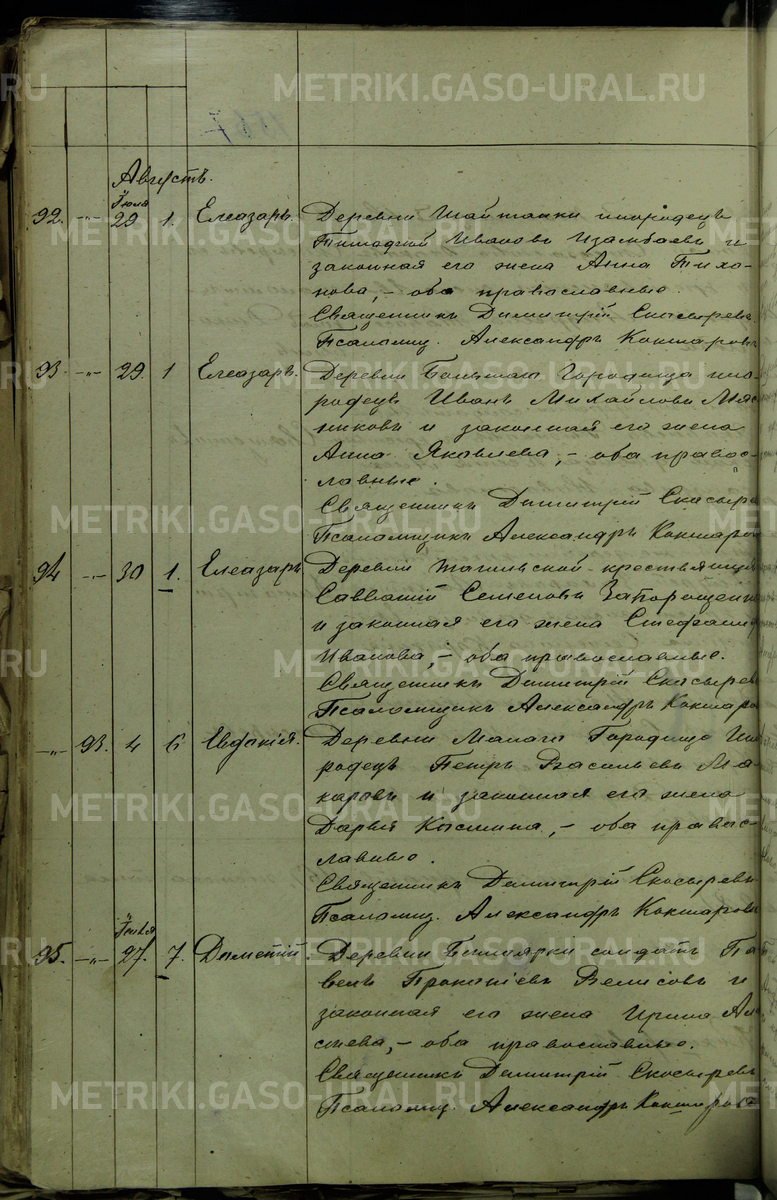 Августъ.
Іюля
92. -„- 29 1. Елеазаръ. Деревни Шайтанки инородецъ
Тимофей Ивановъ Изамбаевъ и
законная его жена Анна Тихо-
нова, – оба православные.
Священникъ Димитрій Скосыревъ
Псаломщ. Александръ Кокшаровъ
93. -„- 29. 1 Елеазаръ. Деревни Большаго Городища ино-
родецъ Иванъ Михайловъ Мяс
никовъ и законная его жена
Анна Яковлева, – оба правос-
лавные.
Священникъ Димитрій Скосыре
Псаломщикъ Александръ Кокшаро
94 -„- 30 1. Елеазаръ Деревни крестьянинъ
Савватій Семеновъ Запорощен
и законная его жена Стефани
Иванова, – оба православные.
Священникъ Димитрій Скосырев
Псаломщикъ Александръ Кокшаро
-„- 93. 4 6 Евдокія. Деревни Малаго Городища ино
родецъ Петръ Васильевъ Ма
каровъ и законная его жена
Дарья Космина, – оба правос
лавные.
Священникъ Димитрій Скосыревъ
Псаломщ. Александръ Кокшаровъ
Іюля
95. -„- 27. 7. Дометій. Деревни солдатъ Па
велъ Прокопіевъ и
законная его жена Ирина Але
ева, – оба православные.
Священникъ Димитрій Скосыревъ
Псаломщ. Александръ Кокшаровъ
METRIKI.GASO-URAL.RU